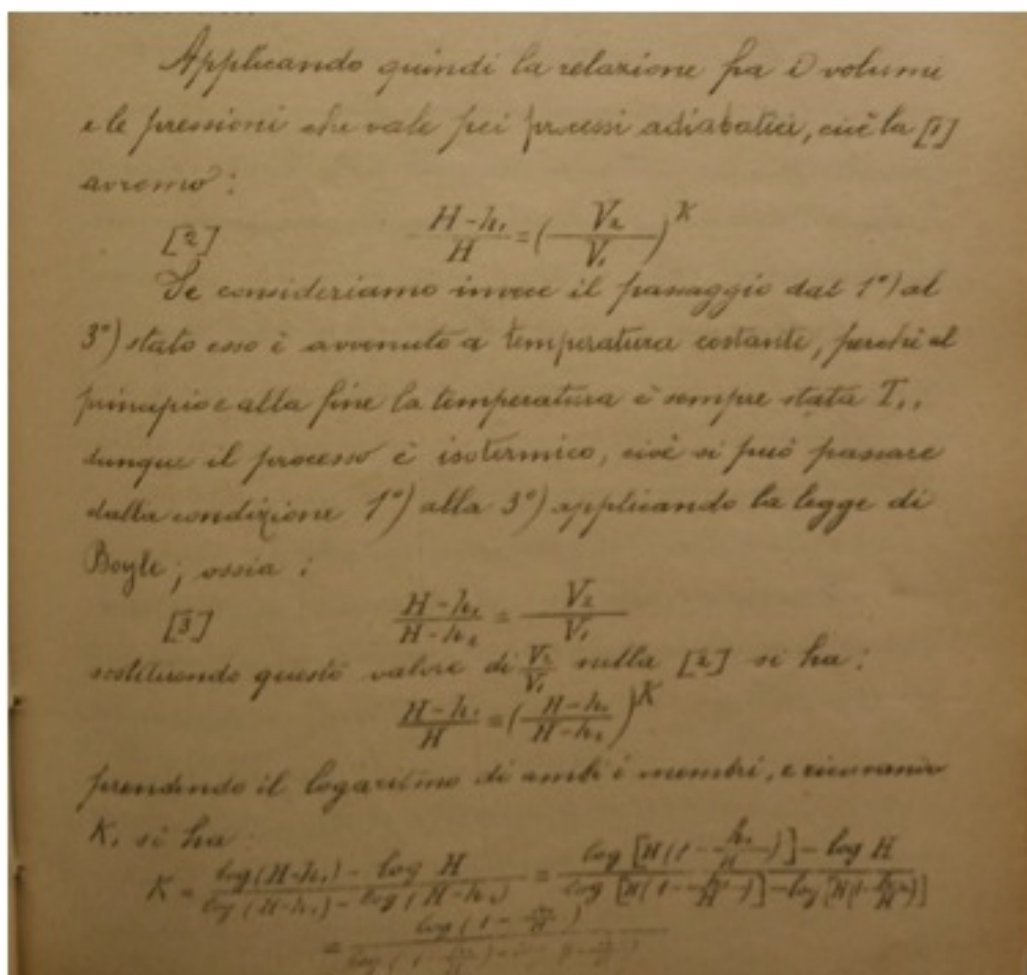 Applicando quindi la relazione fra i volumi
e le pressioni che vale pei processi adiabatici, cioè la [1]
avremo:
[2] \frac{H-h_1}{H} = (\frac{V_2}{V_1})^K
Se consideriamo invece il passaggio dal 1°) al
3°) stato esso è avvenuto a temperatura costante, perchè al
principio e alla fine la temperatura è sempre stata T₁,
dunque il processo è isotermico, cioè si può passare
dalla condizione 1°) alla 3°) applicando la legge di
Boyle; ossia:
[3] \frac{H-h_1}{H-h_2} = \frac{V_2}{V_1}
sostituendo questo valore di \frac{V_2}{V_1} nella [2] si ha:
\frac{H-h_1}{H} = (\frac{H-h_1}{H-h_2})^K
prendendo il logaritmo di ambi i membri, e ricavando
K, si ha:
K = \frac{log(H-h_1) - log H}{log(H-h_1) - log(H-h_2)} = \frac{log[H(1-\frac{h_1}{H})] - log H}{log[H(1-\frac{h_1}{H})] - log[H(1-\frac{h_2}{H})]}
= \frac{log(1-\frac{h_1}{H})}{log(1-\frac{h_1}{H})